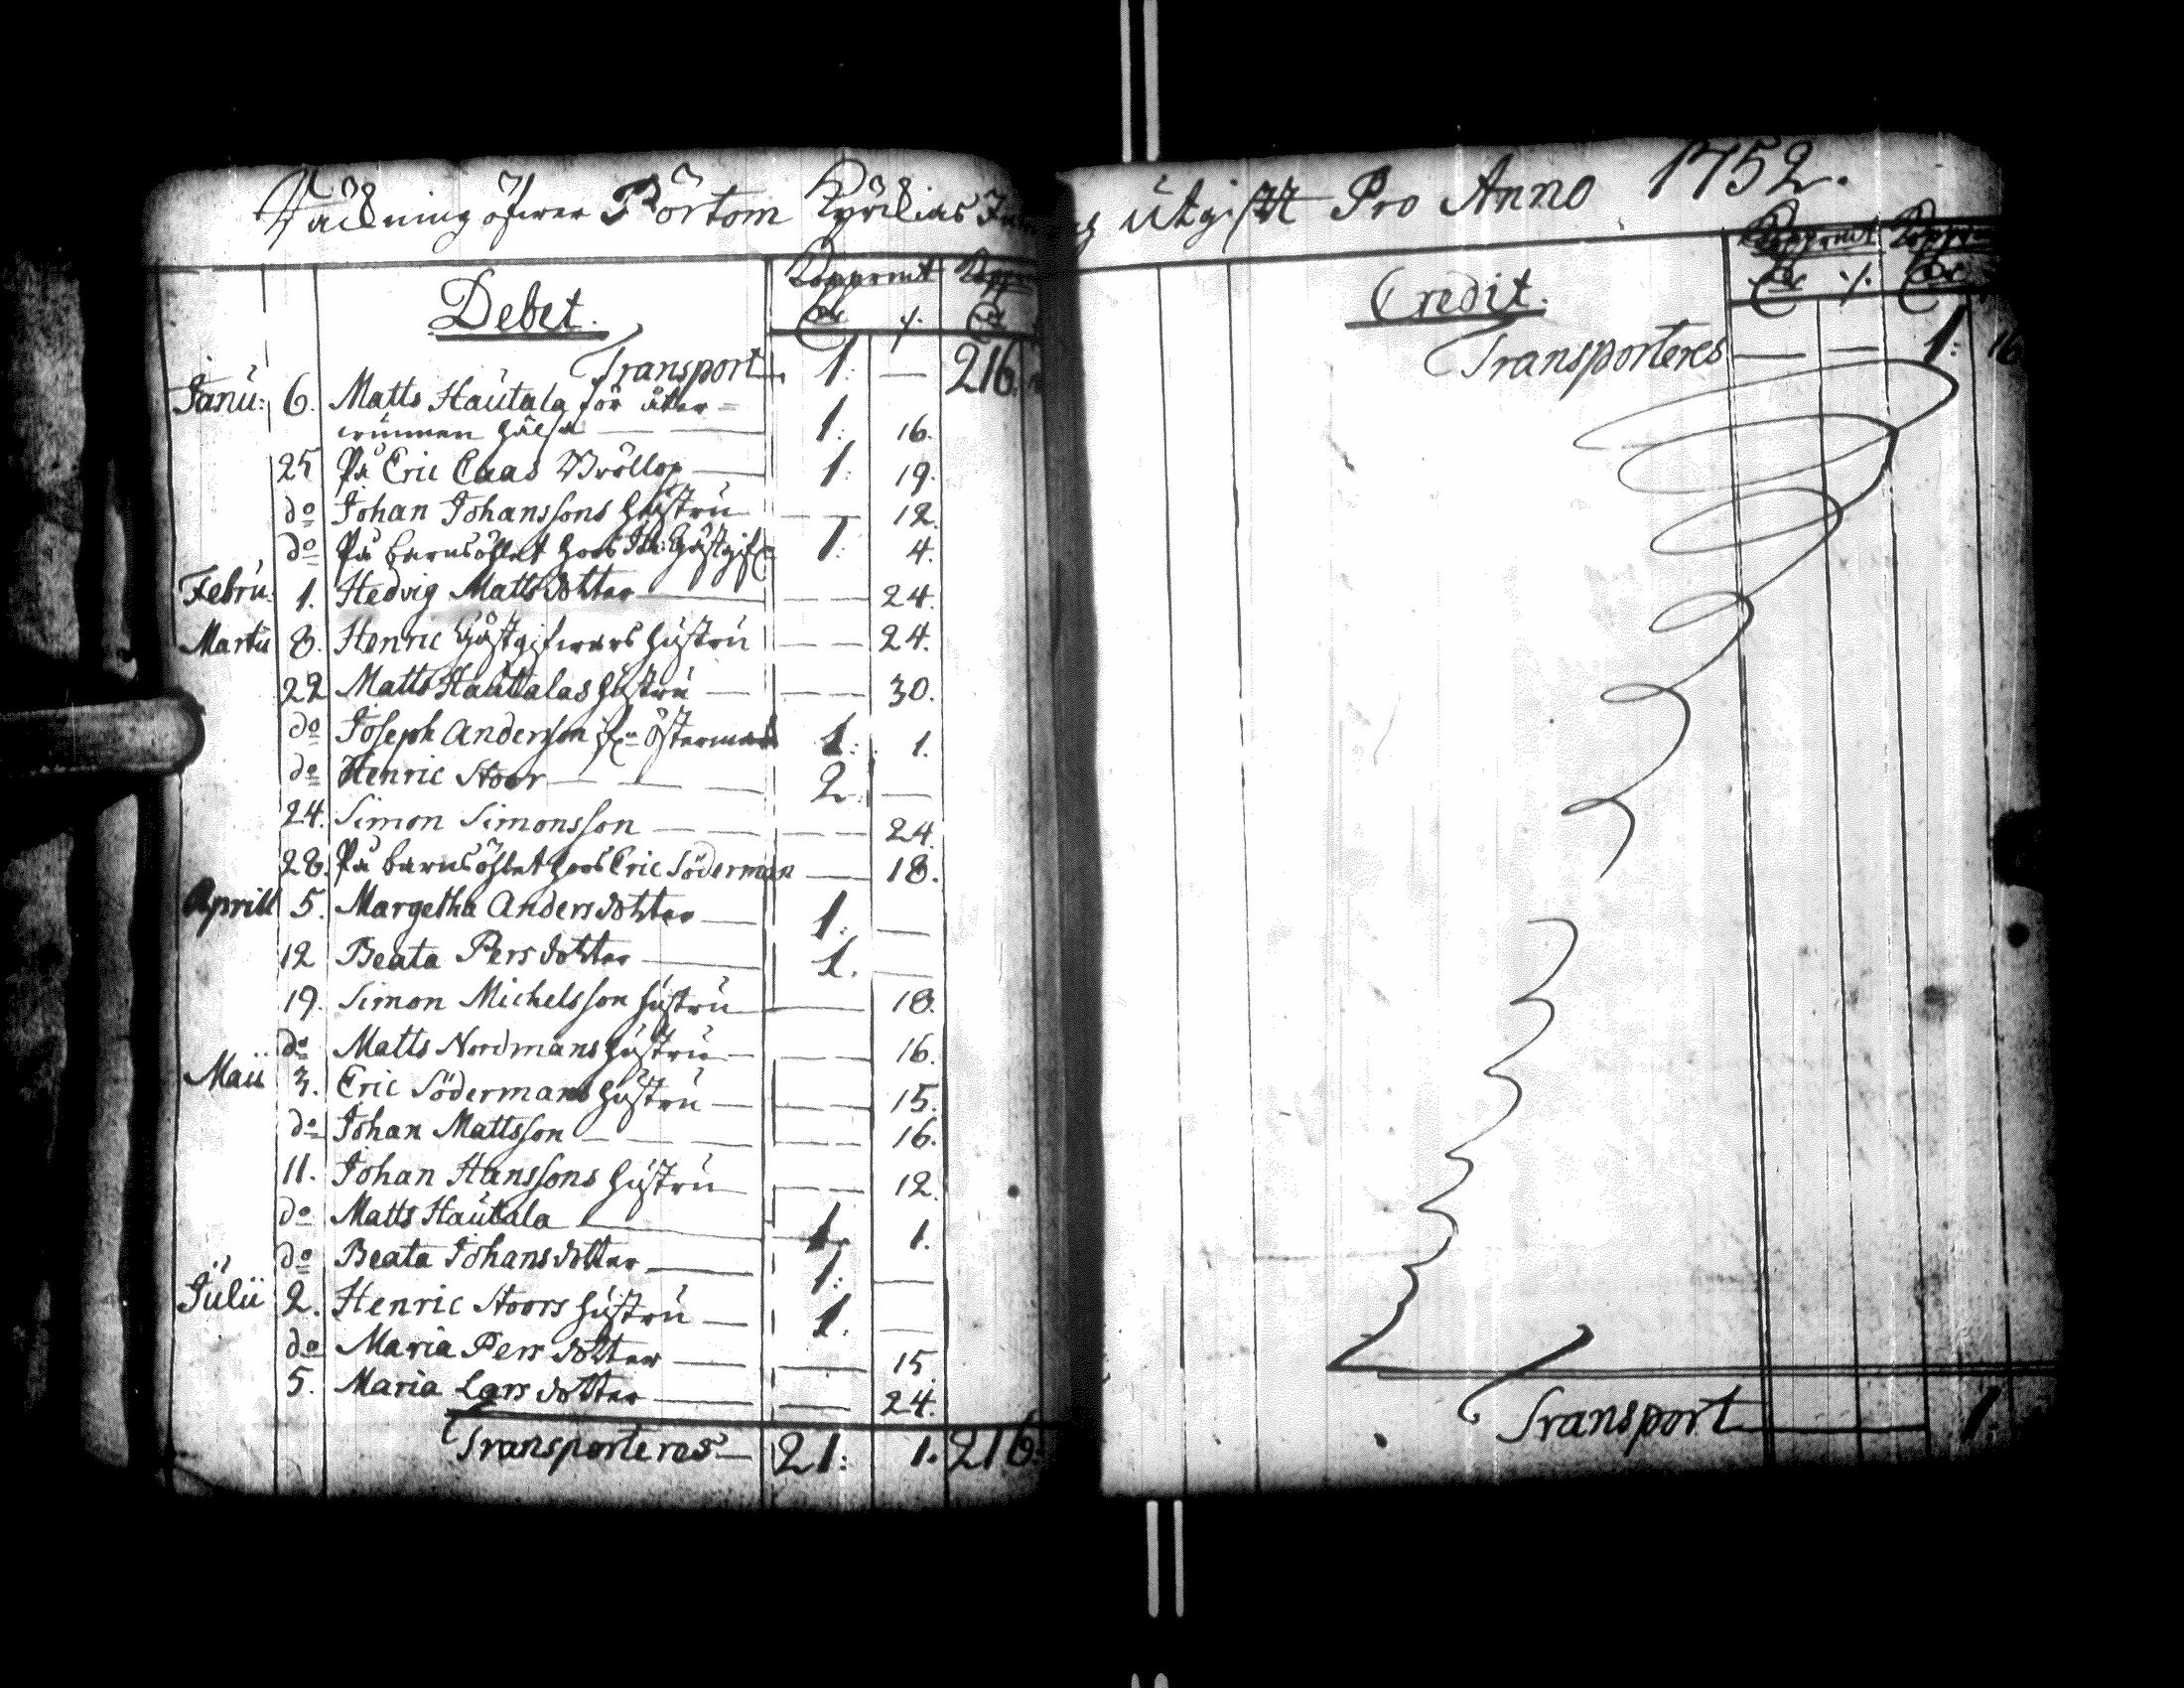 Räckning öfwer Pörtom Kyrckias In
Debet.
Koppmt Kopp
Transport 1: — 216.
Janu: 6. Matts Hautala för åter=
wunnen hälsa — 1: 16.
25 På Eric Caas Bröllop — 1: 19.
do Johan Johanssons hustru — 12.
do På barnsöhlet hoos Gästgif 1: 4.
Febru: 1. Hedvig Mattsdotter — 24.
Martii 8. Henric Gästgifwars hustru — 24.
22 Matts Hautalas hustru — 30.
do Joseph Andersson Östermark 1: 1.
do Henric Stoor — 2. —
24. Simon Simonsson — 24.
28. På barnsöhlet hoos Eric Söderman — 18.
Aprill 5. Margetha Andersdotter — 1: —
12 Beata Persdotter — 1. —
19. Simon Michelsson hustru — 18.
do Matts Nordmans hustru — 16.
Maii 3. Eric Södermans hustru — 15.
do Johan Mattsson — 16.
11. Johan Hanssons hustru — 12.
do Matts Hautala — 1 1.
do Beata Johansdotter — 1: —
Julii 2. Henric Stoors hustru — 1. —
do Maria Persdotter — 15.
5. Maria Larsdotter — 24.
Transporteres — 21: 1. 216:
utgifft Pro Anno 1752.
Credit.
Koppmt Kopp
Transporteres — — 1: 16
Transport — 1